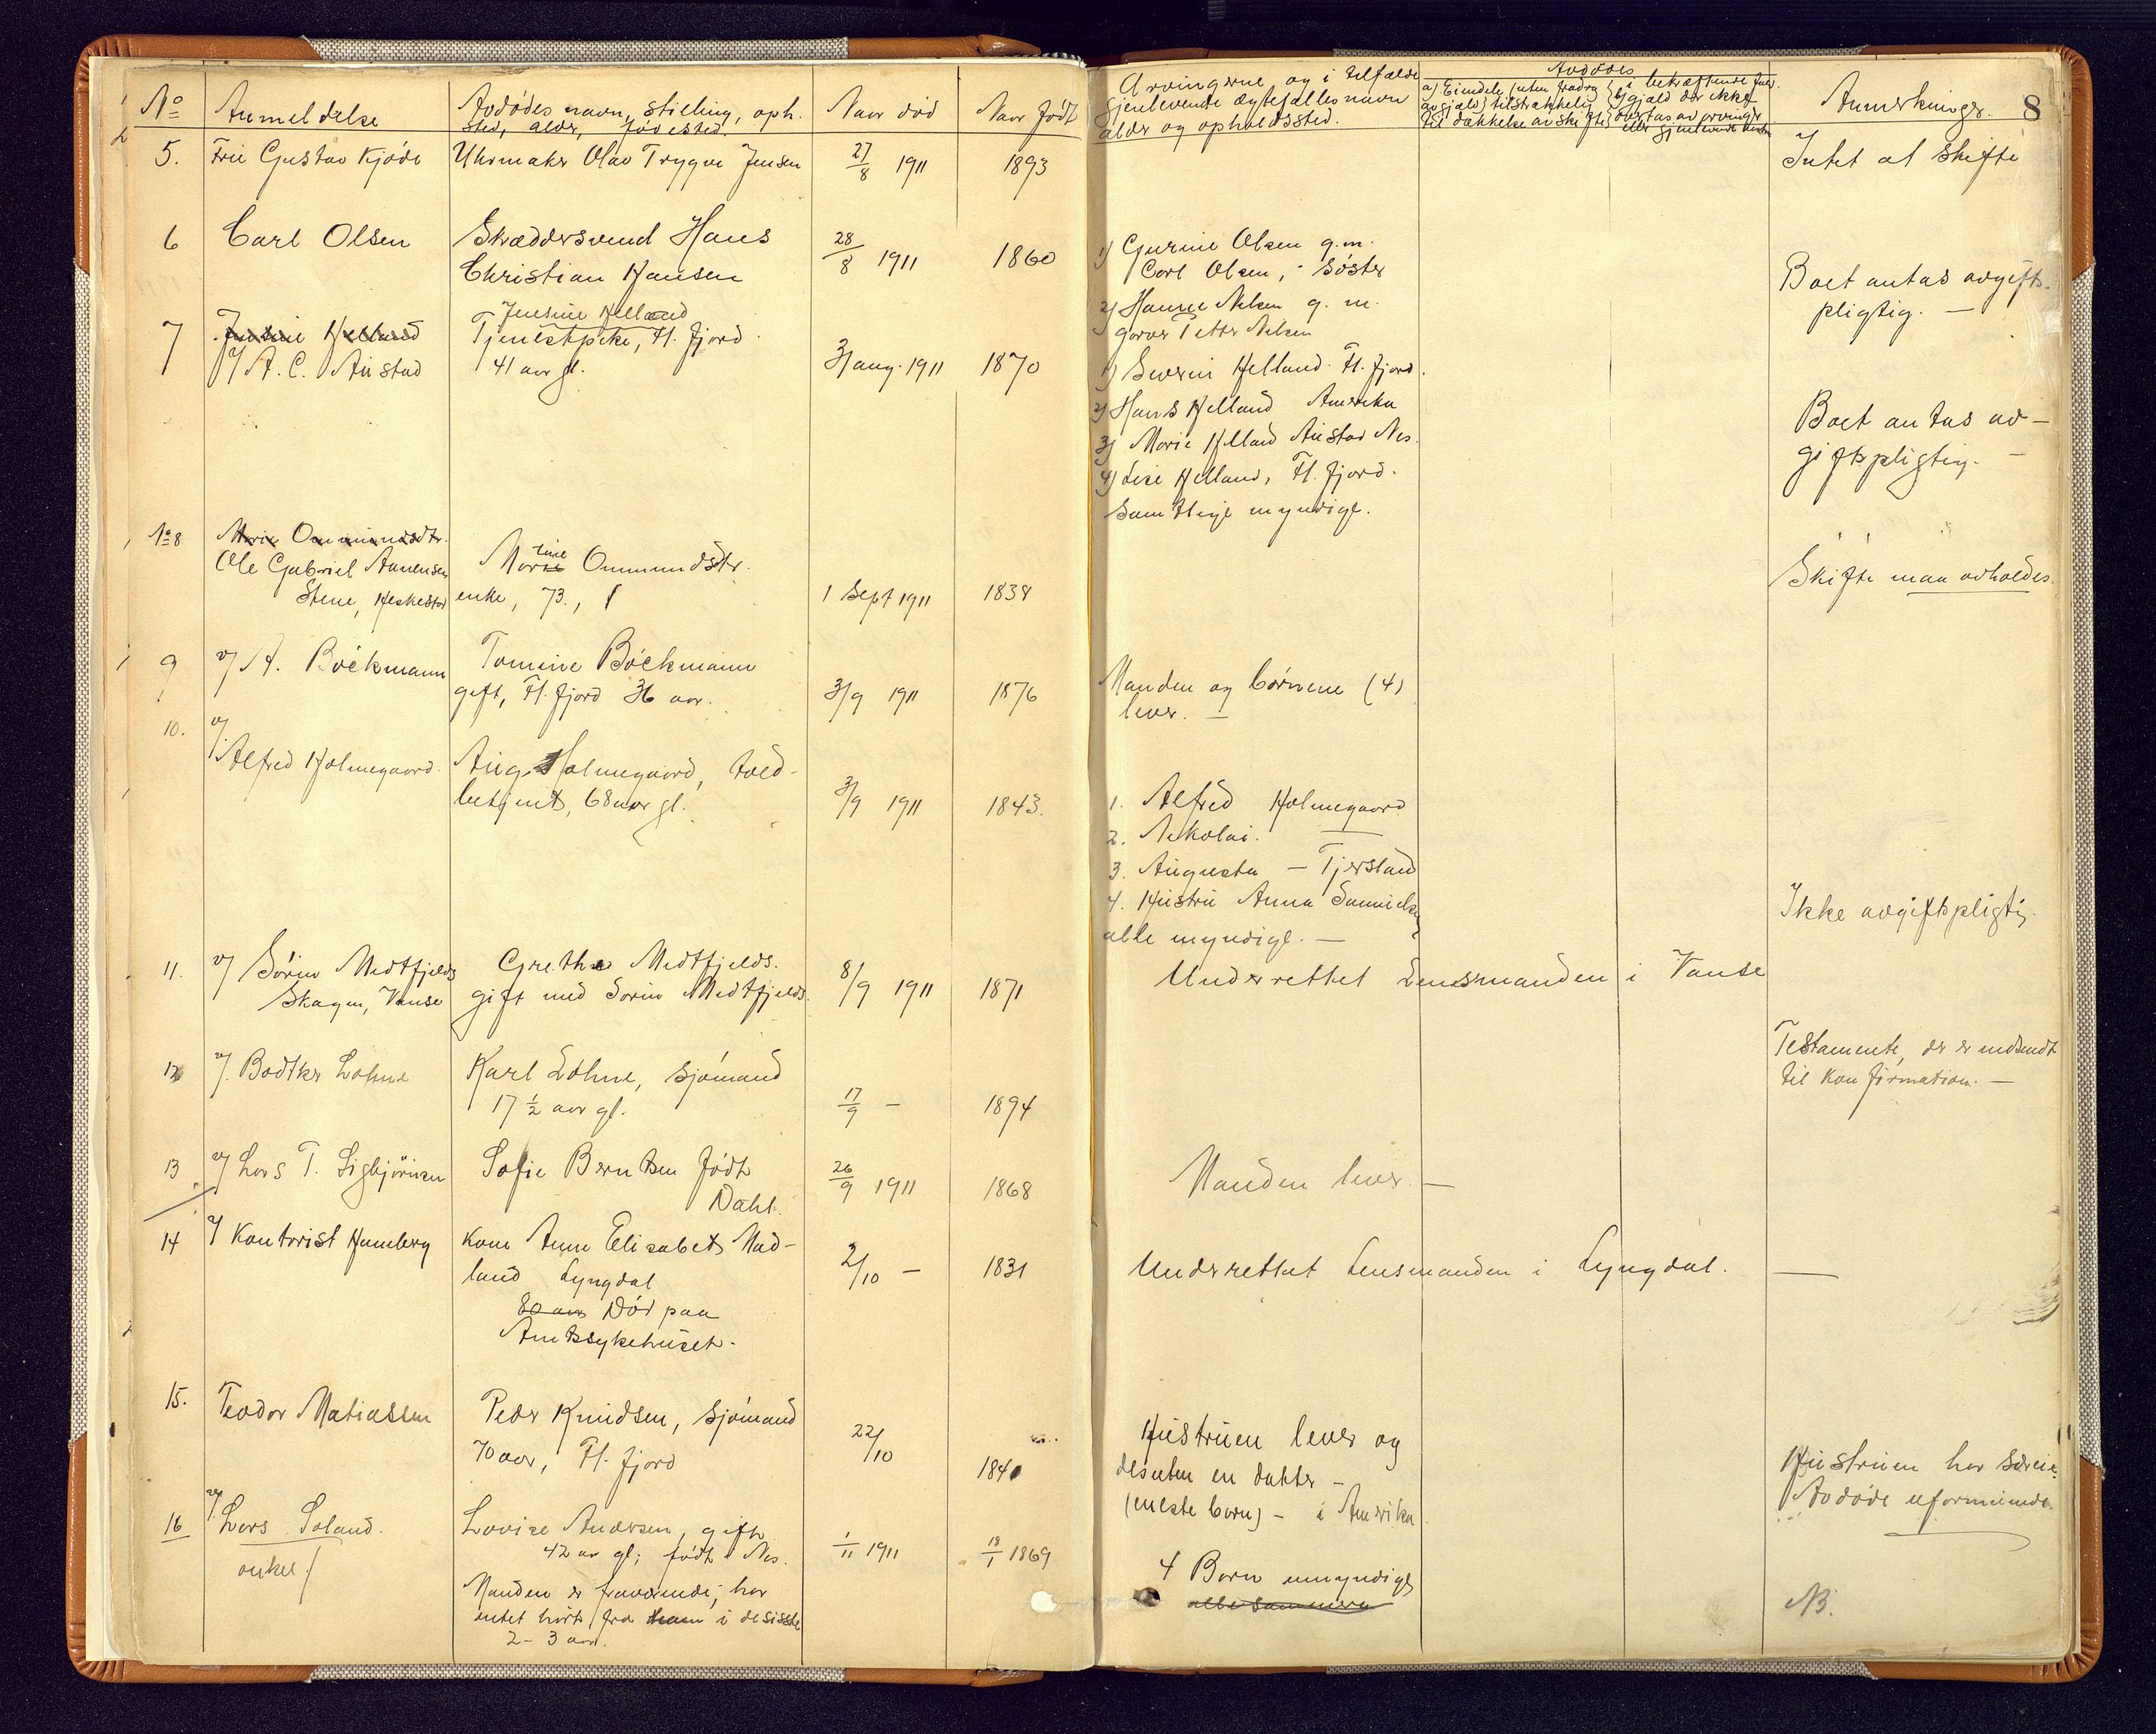 8
No Anmeldelse Avdødes navn, stilling, oph. sted, alder, fødested. Naar død Naar født
Arvingerne og i tilfælde
gjenlevende ægtefælles navn
alder og opholdssted.
Avdødes
a) Eiendele (uten fradrag
av gjæld) tilstrækkelig
til dækkelse av skifte
b) gjæld der ikke
overtas av arvinger
eller gjenlevende
Anmerkninger.
5. Gustav Kjøde Uhrmaker Olav Trygve Jensen 27/8 1911 1893 Intet at skifte
6 Carl Olsen Skræddersvend Hans
Christian Hansen 28/8 1911 1860
1) Gurine Olsen g.m.
Carl Olsen, Søster
2) Hanne Nelsen g. m.
garver Petter Nelsen
Boet antas avgifts-
pligtig. —
7 Jensine Helland
v/ A. C. Austad
Jensine Helland
Tjenestpike, Fl. fjord
41 aar gl. 3 aug. 1911 1870
1) Severin Helland Fl. fjord.
2) Hans Helland Amerika
3) Marie Helland Austad Nes.
4) Lise Helland, Fl. fjord.
Samtlige myndige.
Boet antas av-
giftspligtig. —
No 8 Marie Ommundsdtr.
Ole Gabriel Aanensen
Stene, Heskestad
Martine Ommundsdtr.
enke, 73., 1 Sept 1911 1838 Skifte maa avholdes.
9 v/ A. Böckmann Tomine Böckmann
gift, Fl. fjord 36 aar. 3/9 1911 1876
Manden og børnene (4)
lever. —
10. v/
Alfred Holmegaard Aug. Holmegaard, told-
betjent, 68 aar gl. 3/9 1911 1843.
1. Alfred Holmegaard
2. Nikolai. —
3. Augusta — Tjersland
4. Hustru Anna
alle myndige. —
Ikke avgiftspligtig.
11. v/ Sörin Medtfjelds
Skagen, Vanse
Grethe Medtfjelds.
gift med Sorin Medtfjelds. 8/9 1911 1871 Underrettet Lensmanden i Vanse
12 v/. Bødtker Lohne Karl Lohne, sjømand
17 1/2 aar gl. 17/9 — 1894
Testamente, der er indsendt
til konfirmation. —
13 v/ Lars T. Sigbjörnsen Sofie Berntsen født
Dahl. 26/9 1911 1868 Manden lever. —
14 v/ Kontorist Humberg Kone Anne Elisabets Nad-
land Lyngdal
80 aar Död paa
Amtssykehuset. 2/10 — 1831 Underrettet Lensmanden i Lyngdal. —
15. Teodor Matiassen Peder Knudsen, sjömand
70 aar, Fl. fjord 22/10 1841
Hustruen lever og
desuten en datter —
(eneste barn) — i Amerika.
Hustruen har særeie.
Avdøde uformuende.
16 v/ Lars Soland.
onkel
Lovise Andersen, gift
42 aar gl; født i Nes.
Manden er fraværende; har
intet hørt fra ham i de sisste
2 - 3 aar. 1/11 1911 18/1 1869
4 Barn umyndige
alle sammen
NB.